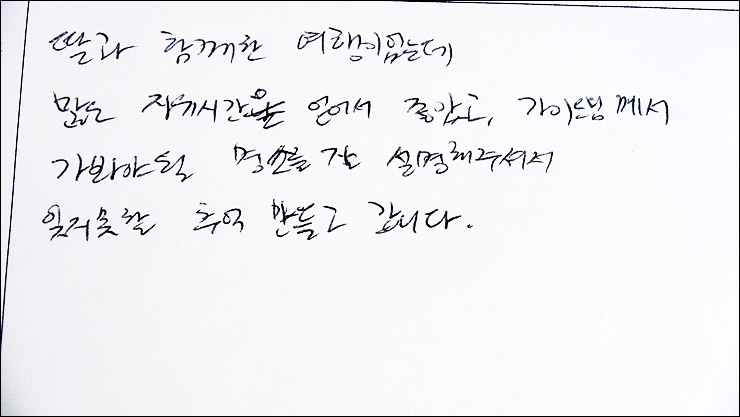 딸과 함께한 여행이였는데
많은 자유시간을 얻어서 좋았고, 가이드님께서
가봐야될 명소를 잘 설명해주셔서
잊지못할 추억 만들고 갑니다.